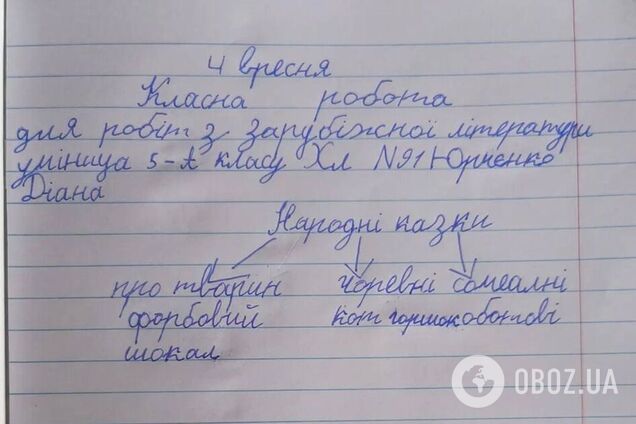 4 вресня
Класна робота
для робіт з зарубіжної літератури
уміница 5-А класу Хл №91 Юрченко
Діана
Народні казки
про тварин чоревні сомеалні
фарбовий кот горшок оботові
шокал
OBOZ.UA